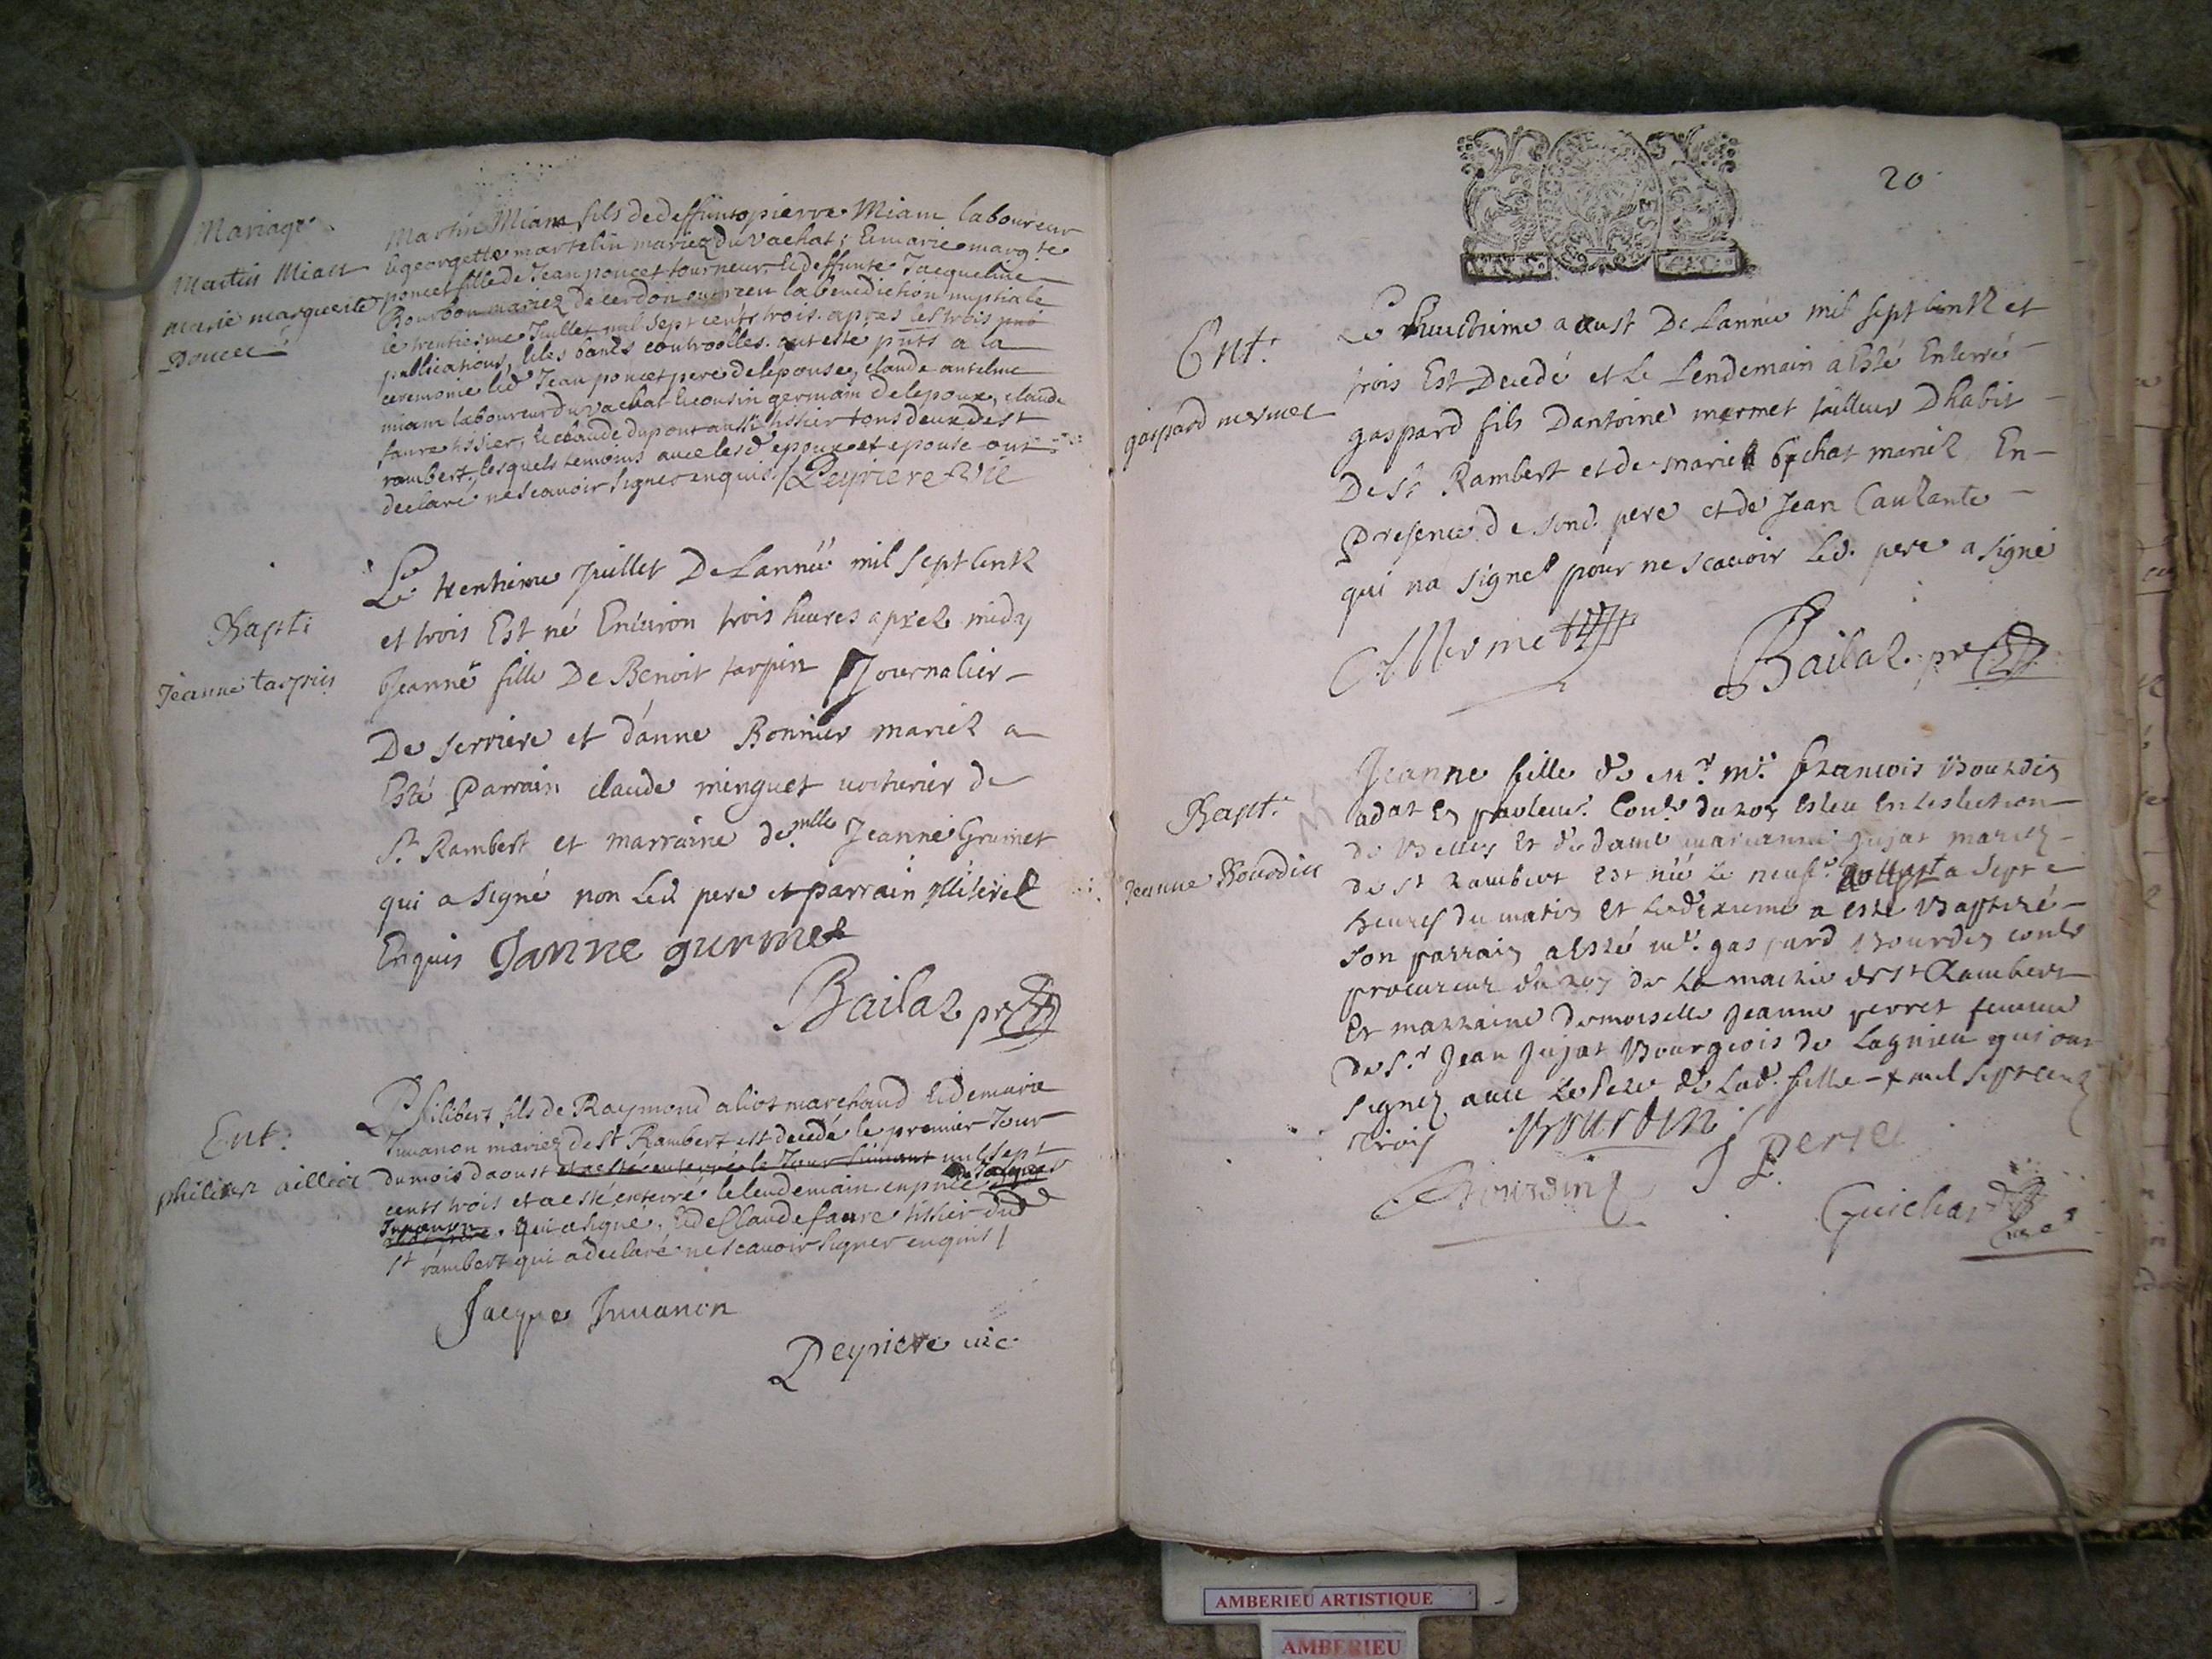 Mariage
Martin Miam
marie marguerite
Poncet
Martin Miam fils de deffuncts pierre Miam laboureur
& georgette martelin mariez du vachat; & marie marg.te
poncet fille de Jean poncet tourneur, & deffunte Jacqueline
Bourbon mariez de cerdon ont receu la benediction nuptiale
le trentiesme Juillet mil sept cents trois. apres les trois
publications, & les bancs controolles. ont esté pnts a la
ceremonie led Jean poncet pere de lépouse, claude anselme
miam laboureur du vachat & cousin germain de lepoux, claude
faure tissier, & claude dupont aussi tissier tous deux de st
rambert, lesquels temoins avec lesd epoux et epouse ont
declaré ne scavoir signer enquis / Peyriere vic
Bapt:
Jeanne tarpin
Le trentieme Juillet De Lanneé mil sept centz
et trois Est né Environ trois heures aprez midy
Jeanne fille De Benoit tarpin Journalier
De serriere et d'anne Bonnier mariez a
Esté Parrain claude minguet voiturier de
St. Rambert et marraine de.mlle Jeanne Grumet
qui a signé non Led pere et parrain illiterez
Enquis Janne gurmet
Bailaz pr
Ent:
philibert aillioz
Philibert fils de Raymond alioz marchand & de marie
Juuanon mariez de st Rambert est decedé le premier Jour
du mois daoust et a esté enterré le Jour suivant mil sept
cents trois et a esté enterré le lendemain en pnce de Jacques
Juuanon. qui a signé, & de Claude faure tissier dud
st rambert qui a declaré ne scavoir signer enquis /
Jacque Juuanon
Peyriere vic
20
Ent:
gaspard mermet
Le aoust De Lanneé mil sept centz et
trois Est Decedé et Le Lendemain a Esté Enterré
gaspard fils Dantoine mermet tailleur Dhabit
De St Rambert et de marie bechat mariez En
Presence de sond. pere et de Jean Cauzante
qui na signé pour ne scavoir Led. pere a signé
Mermet
Bailaz pr
Bapt:
Jeanne Bourdin
Jeanne fille de Mr. me. francois Bourdin
adat En parlemt. Conlr du roy Esleu En Leslection
de Belley et de dame marianne Jujat mariez
de st rambert est née le neufe. aoust a sept
heures du matin et le dixieme a esté Baptizé
son parrain a Esté mr. gaspard Bourdin conlr
procureur du roy de la mairie de st Rambert
Et marraine demoiselle Jeanne perret femme
de sr. Jean Jujat Bourgeois de Lagnieu qui ont
signez avec Le Pere de Lad. fille mil sept centz
trois Bourdin
Bourdin J Perret
Guichard
AMBERIEU ARTISTIQUE
AMBERIEU